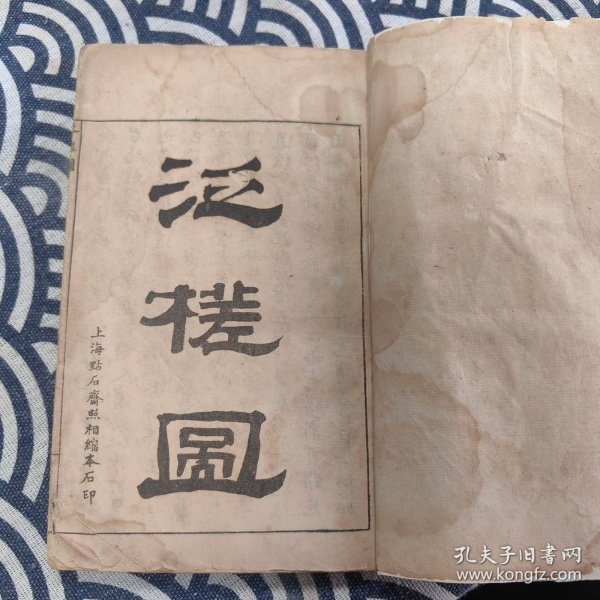 泛槎圖
上海點石齋照相縮本石印
孔夫子旧书网
www.kongfz.com